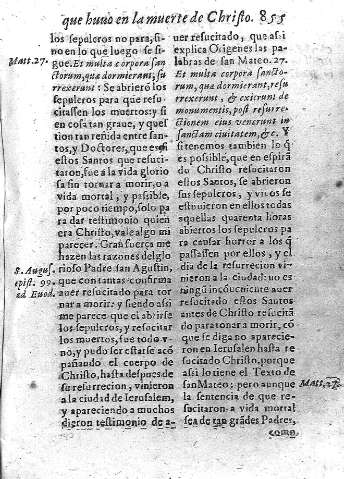 que huuo en la muerte de Christo. 855
los sepulcros no para, si-
no en lo que luego se si-
Matt. 27.
gue. Et multa corpora san-
ctorum, qua dormierant, su-
rrexerunt: Se abrierõ los
sepulcros para que resu-
citassen los muertos: y si
en cosa tan graue, y ques
tion tan reñida entre san-
tos, y Doctores, que es si
estos Santos que resuci-
taron, fue a la vida glorio
sa sin tornar a morir, o a
vida mortal, y passible,
por poco tiempo, solo pa-
ra dar testimonio quien
era Christo, vale algo mi
parecer. Gran fuerça me
hazen las razones del glo
S. Augus.
epist. 99.
ad Euod.
rioso Padre san Agustin,
que con tantas confirma
auer resucitado para tor
nar a morir: y siendo assi
me parece que el abrirse
los sepulcros, y resucitar
los muertos, fue todo v-
no, y pudo ser estarse acõ
pañando el cuerpo de
Christo, hasta despues de
su resurreccion, vinieron
a la ciudad de Ierusalem,
y apareciendo a muchos
dieron testimonio de a-
uer resucitado, que assi
explica Origenes las pa-
labras de san Mateo. 27.
Et multa corpora sancto-
rum, qua dormierant, resu
rrexerunt, & exierunt de
monumentis, post resurre-
ctionem eius venerunt in
sanctam ciuitatem, &c. Y
si tenemos tambien lo q̃
es possible, que en espirã
do Christo resucitaron
estos Santos, se abrieron
sus sepulcros, y viuos es-
tuuieron en ellos todas
aquellas quarenta horas
abiertos los sepulcros pa
ra causar horror a los q̃
passassen por ellos, y el
dia de la resurreccion vi-
nieron a la ciudad: no es
ningũ incõueniente auer
resucitado estos Santos
antes de Christo resucitã
do para tonar a morir, cõ
que se diga no aparecie-
ron en Ierusalen hasta re
sucitado Christo, porque
assi lo tiene el Texto de
san Mateo; pero aunque
Matt. 27.
la sentencia de que re-
sucitaron a vida mortal
sea de tan grãdes Padres,
como